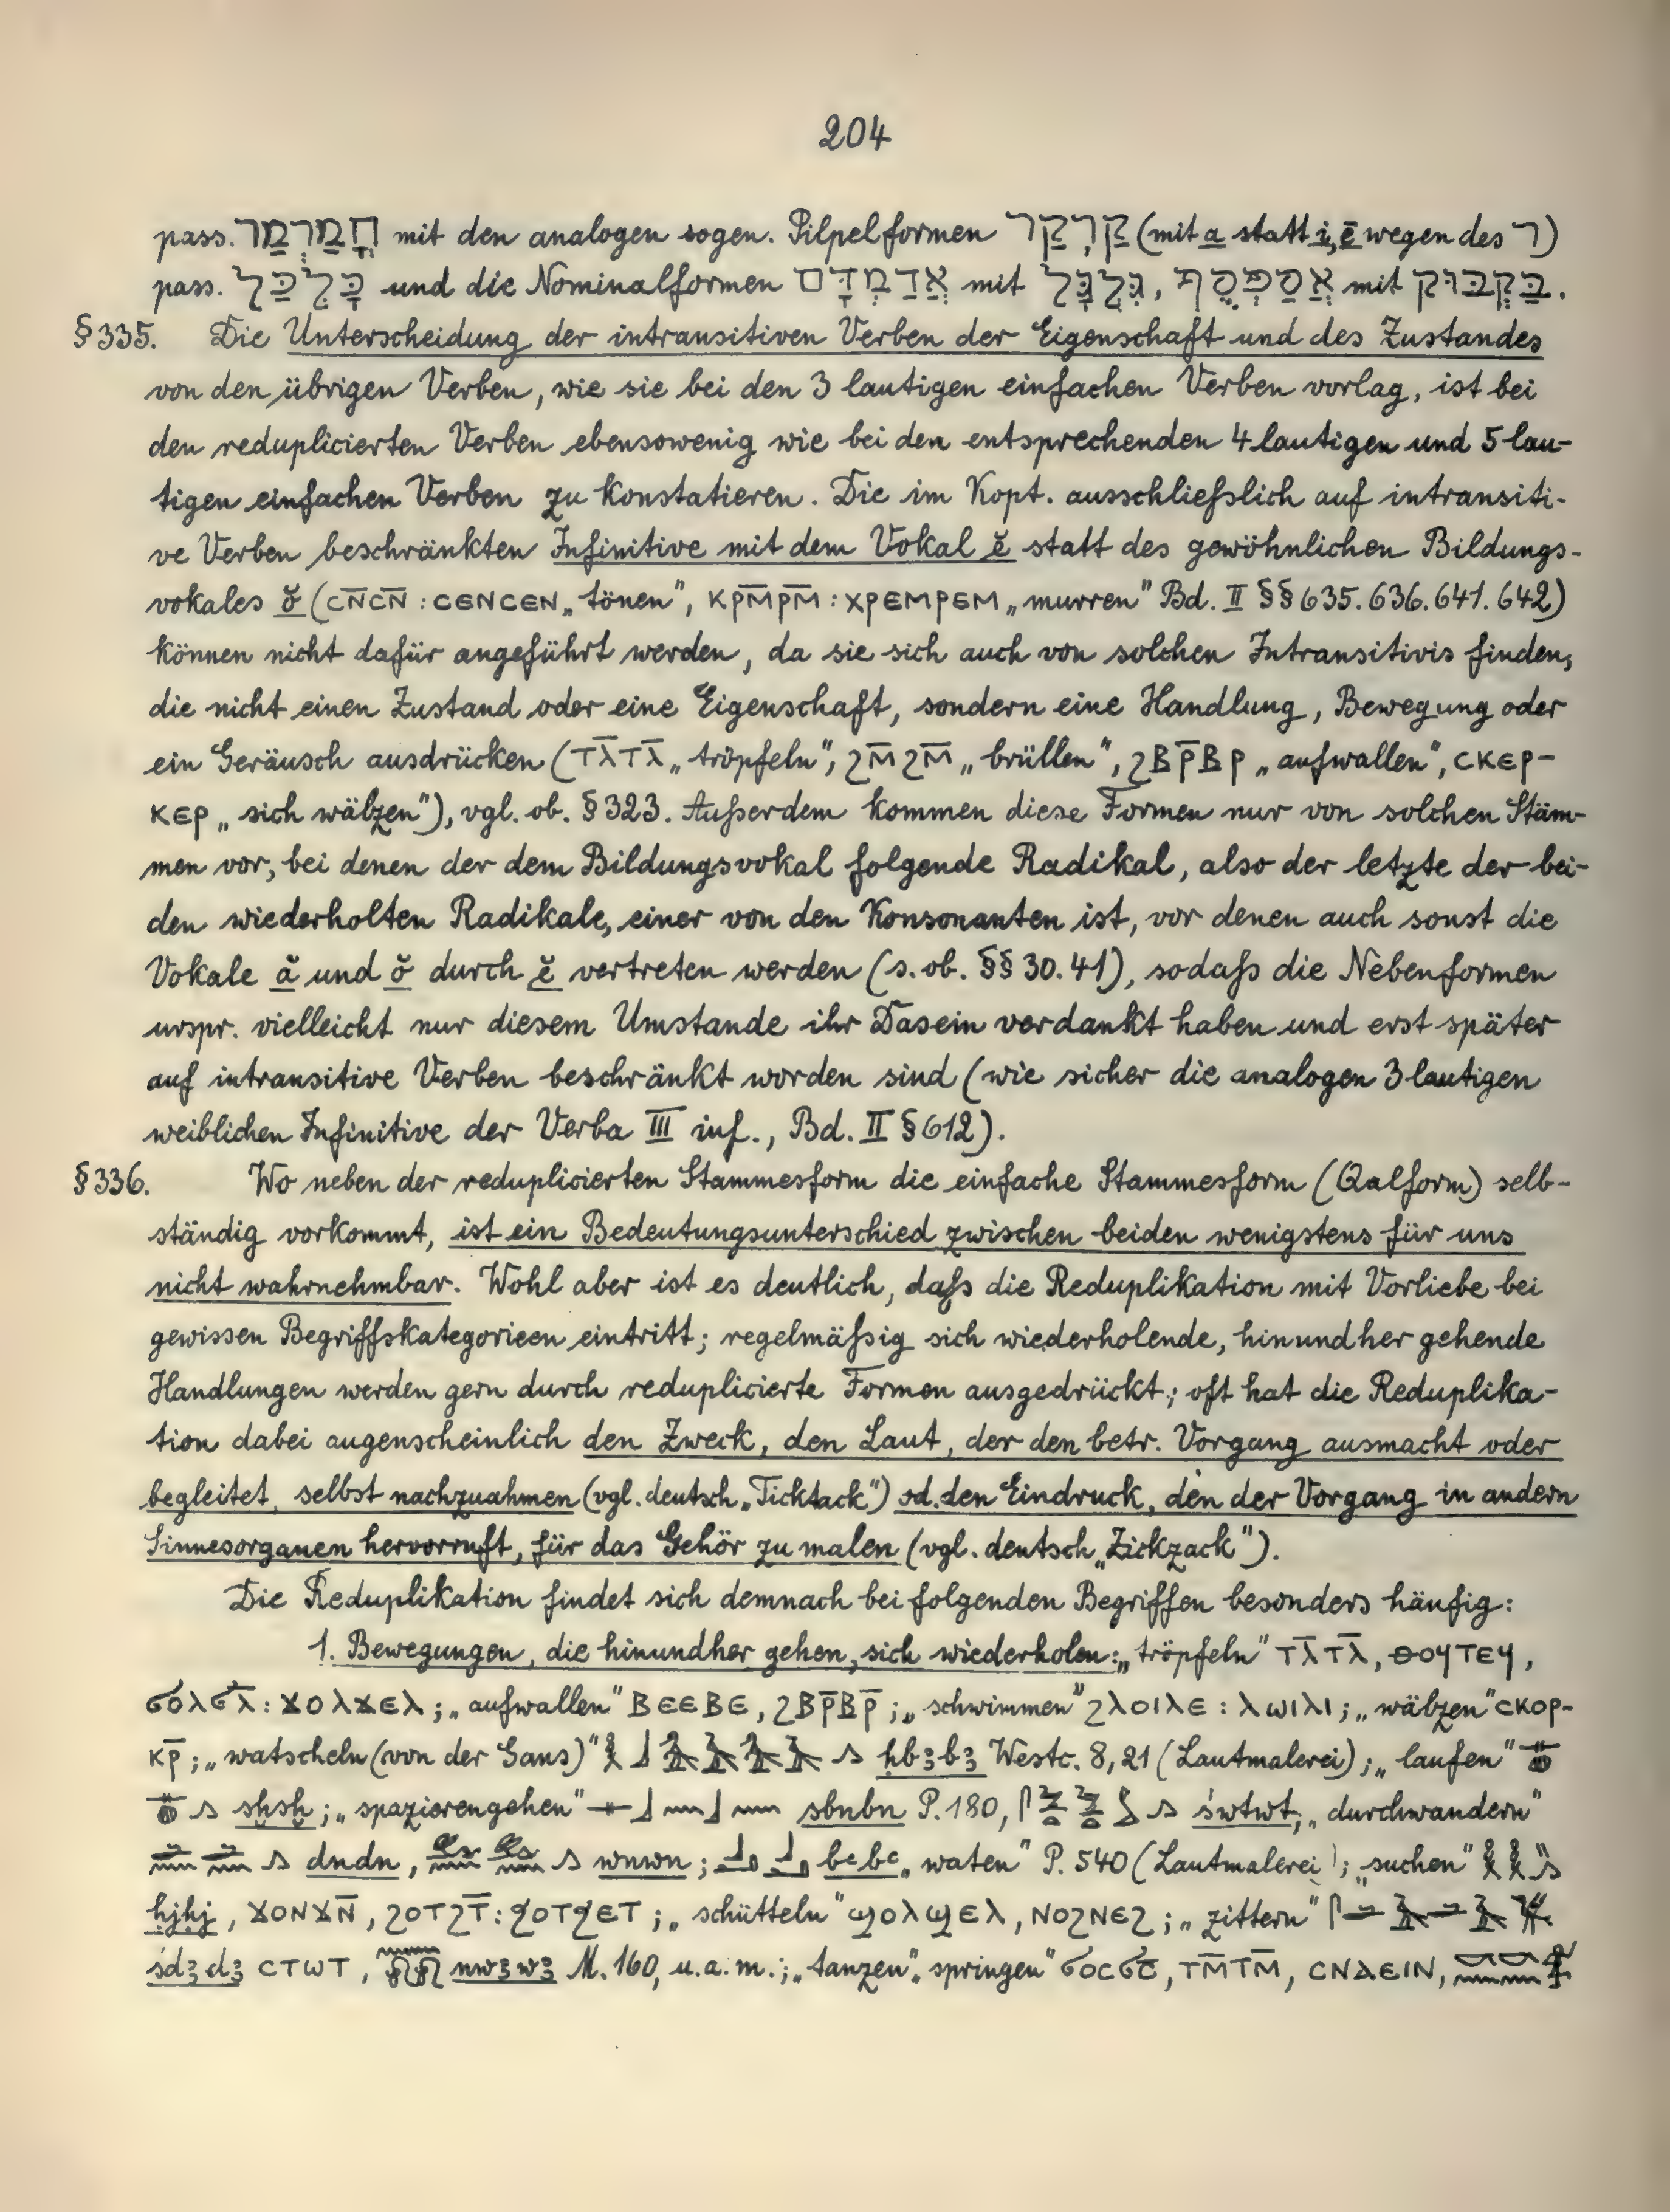 204
pass. חֳמַרְמַר mit den analogen sogen. Pilpelformen קַרְקַר (mit a statt i, ē wegen des ר)
pass. כָּלְכַּל und die Nominalformen אֲדַמְדָּם mit גִּלְגָּל, אֲסַפְסֻף mit בַּקְבּוּק.
§335. Die Unterscheidung der intransitiven Verben der Eigenschaft und des Zustandes
von den übrigen Verben, wie sie bei den 3 lautigen einfachen Verben vorlag, ist bei
den reduplicierten Verben ebensowenig wie bei den entsprechenden 4 lautigen und 5 lau-
tigen einfachen Verben zu konstatieren. Die im Kopt. ausschließlich auf intransiti-
ve Verben beschränkten Infinitive mit dem Vokal ĕ statt des gewöhnlichen Bildungs-
vokales ŏ (ⲥⲛ̄ⲥⲛ̄ : ⲥⲉⲛⲥⲉⲛ „tönen", ⲕⲣⲙ̄ⲣⲙ̄ : ⲭⲣⲉⲙⲣⲉⲙ „murren" Bd. II §§ 635. 636. 641. 642)
können nicht dafür angeführt werden, da sie sich auch von solchen Intransitivis finden,
die nicht einen Zustand oder eine Eigenschaft, sondern eine Handlung, Bewegung oder
ein Geräusch ausdrücken (ⲧⲗ̄ⲧⲗ̄ „tröpfeln", ϩⲙ̄ϩⲙ̄ „brüllen", ϩⲃⲣ̄ⲃⲣ „aufwallen", ⲥⲕⲉⲣ-
ⲕⲉⲣ „sich wälzen"), vgl. ob. §323. Außerdem kommen diese Formen nur von solchen Stäm-
men vor, bei denen der dem Bildungsvokal folgende Radikal, also der letzte der bei-
den wiederholten Radikale, einer von den Konsonanten ist, vor denen auch sonst die
Vokale ă und ŏ durch ĕ vertreten werden (s. ob. §§ 30. 41), sodaß die Nebenformen
urspr. vielleicht nur diesem Umstande ihr Dasein verdankt haben und erst später
auf intransitive Verben beschränkt worden sind (wie sicher die analogen 3 lautigen
weiblichen Infinitive der Verba III inf., Bd. II § 612).
§336. Wo neben der reduplicierten Stammesform die einfache Stammesform (Qalform) selb-
ständig vorkommt, ist ein Bedeutungsunterschied zwischen beiden wenigstens für uns
nicht wahrnehmbar. Wohl aber ist es deutlich, daß die Reduplikation mit Vorliebe bei
gewissen Begriffskategorieen eintritt; regelmäßig sich wiederholende, hinundher gehende
Handlungen werden gern durch reduplicierte Formen ausgedrückt; oft hat die Reduplika-
tion dabei augenscheinlich den Zweck, den Laut, der den betr. Vorgang ausmacht oder
begleitet, selbst nachzuahmen (vgl. deutsch „Ticktack") od. den Eindruck, den der Vorgang in andern
Sinnesorganen hervorruft, für das Gehör zu malen (vgl. deutsch „Zickzack").
Die Reduplikation findet sich demnach bei folgenden Begriffen besonders häufig:
1. Bewegungen, die hinundher gehen, sich wiederholen: „tröpfeln" ⲧⲗ̄ⲧⲗ̄, ⲑⲟϥⲧⲉϥ,
ϭⲟⲗϭⲗ̄ : ϫⲟⲗϫⲉⲗ; „aufwallen" ⲃⲉⲉⲃⲉ, ϩⲃⲣ̄ⲃⲣ̄; „schwimmen" ϩⲗⲟⲓⲗⲉ : ⲗⲱⲓⲗⲓ; „wälzen" ⲥⲕⲟⲣ-
ⲕⲣ̄; „watscheln (von der Gans)" ḥbꜣbꜣ Westc. 8,21 (Lautmalerei); „laufen"
sḫsḫ; „spazierengehen" sbnbn P. 180, śwtwt; „durchwandern"
dndn, wnwn; bꜥbꜥ „waten" P. 540 (Lautmalerei); „suchen"
ḥjḥj, ϫⲟⲛϫⲛ̄, ϩⲟⲧϩⲧ̄ : ϧⲟⲧϧⲉⲧ; „schütteln" ϣⲟⲗϣⲉⲗ, ⲛⲟϩⲛⲉϩ; „zittern"
śdꜣdꜣ ⲥⲧⲱⲧ, nwꜣwꜣ M. 160, u. a. m.; „tanzen" „springen" ϭⲟⲥϭⲥ̄, ⲧⲙ̄ⲧⲙ̄, ⲥⲛⲁⲉⲓⲛ,